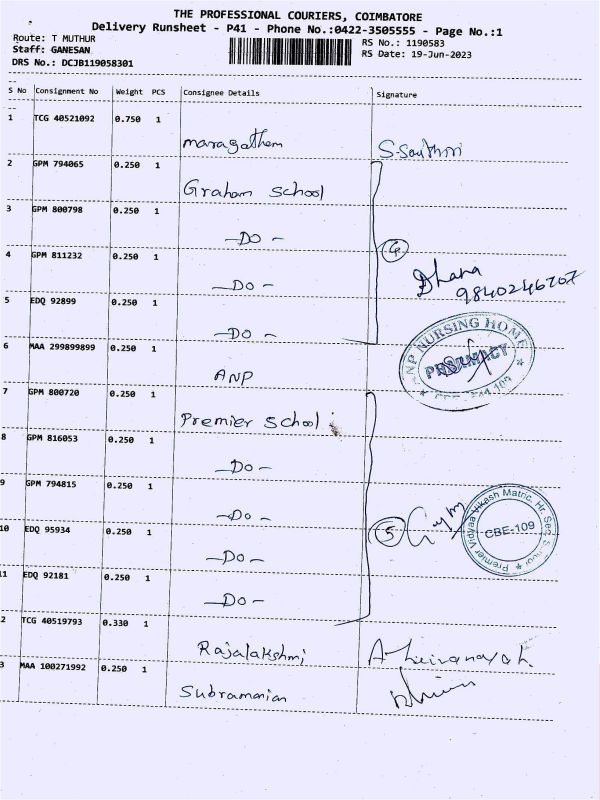 THE PROFESSIONAL COURIERS, COIMBATORE
Delivery Runsheet - P41 - Phone No.:0422-3505555 - Page No.:1
Route: T MUTHUR
Staff: GANESAN
DRS No.: DCJB119058301
RS No.: 1190583
RS Date: 19-Jun-2023
S No Consignment No Weight PCS Consignee Details Signature
1 TCG 40521092 0.750 1
maragathem
2 GPM 794065 0.250 1
Graham School
3 GPM 800798 0.250 1
-Do-
4 GPM 811232 0.250 1
-Do-
4
Dhana
9840246707
5 EDQ 92899 0.250 1
-Do-
6 MAA 299899899 0.250 1
ANP
ANP NURSING HOME
PHARMACY
7 GPM 800720 0.250 1
Premier School
8 GPM 816053 0.250 1
-Do-
9 GPM 794815 0.250 1
-Do-
10 EDQ 95934 0.250 1
-Do-
5
Premier Vidyaa Vikash Matric. Hr. Sec. School
CBE-109
11 EDQ 92181 0.250 1
-Do-
2 TCG 40519793 0.330 1
Rajalakshmi
3 MAA 100271992 0.250 1
Subramanian